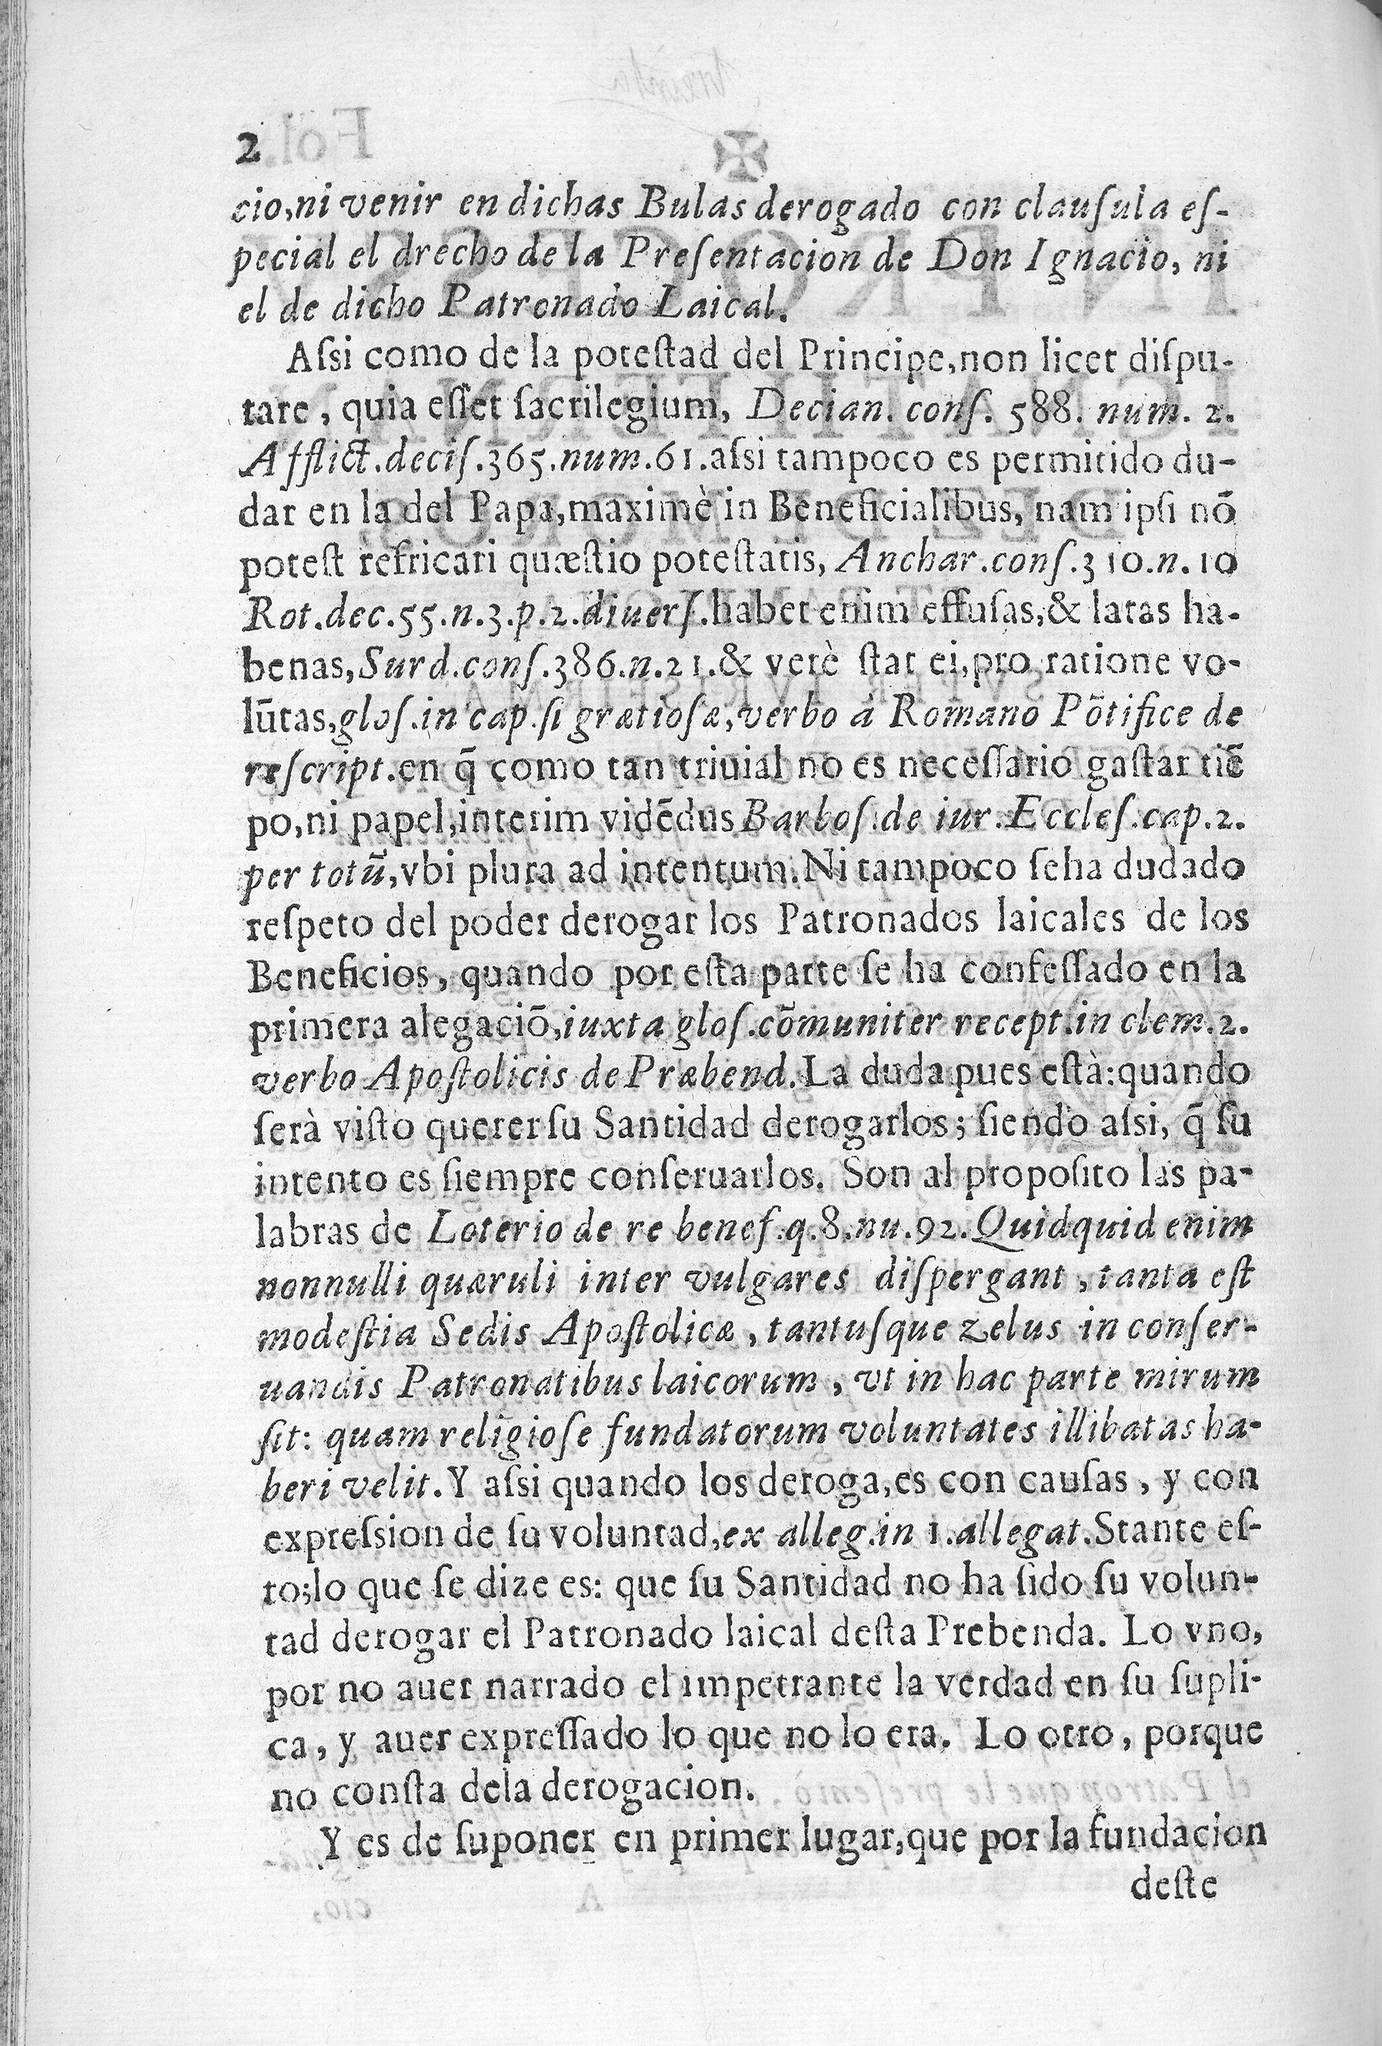 2
cio,ni venir en dichas Bulas derogado con clauſula eſ-
pecial el drecho de la Preſentacion de Don Ignacio, ni
el de dicho Patronado Laical.
Aſsi como de la poteſtad del Principe,non licet diſpu-
tare, quia eſſet ſacrilegium, Decian. conſ. 588. num. 2.
Afflict.deciſ.365.num.61.aſsi tampoco es permitido du-
dar en la del Papa,maximè in Beneficialibus, nam ipſi nõ
poteſt refricari quæſtio poteſtatis, Anchar.conſ.310.n.10
Rot.dec.55.n.3.p.2.diuerſ.habet enim effuſas,& latas ha-
benas,Surd.conſ.386.n.21.& verè ſtat ei,pro ratione vo-
lũtas,gloſ.in cap.ſi gratioſæ,verbo à Romano Põtifice de
reſcript.en q̃ como tan triuial no es neceſſario gaſtar tiẽ
po,ni papel,interim vidẽdus Barboſ.de iur.Eccleſ.cap.2.
per totũ,vbi plura ad intentum.Ni tampoco ſeha dudado
reſpeto del poder derogar los Patronados laicales de los
Beneficios, quando por eſta parte ſe ha confeſſado en la
primera alegaciõ,iuxta gloſ.cõmuniter recept.in clem.2.
verbo Apoſtolicis de Præbend.La duda pues eſtà:quando
ſerà viſto querer ſu Santidad derogarlos; ſiendo aſsi, q̃ ſu
intento es ſiempre conſeruarlos. Son al propoſito las pa-
labras de Loterio de re benef.q.8.nu.92.Quidquid enim
nonnulli quæruli inter vulgares diſpergant, tanta eſt
modeſtia Sedis Apoſtolicæ, tantuſque zelus in conſer-
uandis Patronatibus laicorum, vt in hac parte mirum
ſit: quam religioſe fundatorum voluntates illibatas ha-
beri velit.Y aſsi quando los deroga,es con cauſas, y con
expreſsion de ſu voluntad,ex alleg.in 1.allegat.Stante eſ-
to;lo que ſe dize es: que ſu Santidad no ha ſido ſu volun-
tad derogar el Patronado laical deſta Prebenda. Lo vno,
por no auer narrado el impetrante la verdad en ſu ſupli-
ca, y auer expreſſado lo que no lo era. Lo otro, porque
no conſta dela derogacion.
Y es de ſuponer en primer lugar,que por la fundacion
deſte